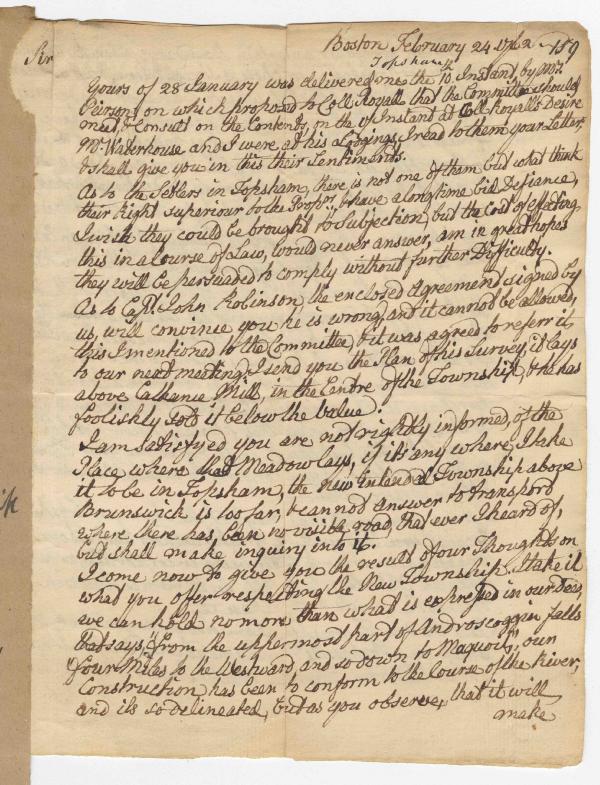 Boston February 24 1762 159
Topsham
Sir
Yours of 28 January was delivered me the 10 Instant, by Mr.
Pierson, on which proposd to Coll Royall that the Committee should
meet, & Consult on the Contents, on the Instant at Coll Royall's Desire
Mr Waterhouse and I were at his Lodgings I read to them your Letter,
& shall give you in this their Sentiments.
As to the Setlers in Topsham, there is not one of them but what think
their Right superiour to the Proprs. & have a long time bid Defiance,
I wish they could be brought to Subjection, but the Cost of effecting
this in a Course of Law, would never answer, am in great hopes
they will be persuaded to comply without further Difficulty.
As to Capt. John Robinson, the enclosed Agreement signed by
us, will convince you he is wrong, and it cannot be allowed,
this I mentioned to the Committee, & it was agreed to referr it,
to our next meeting, I send you the Plan of his Survey, it lays
above Cathance Mill, in the Centre of the Township, & he has
foolishly sold it below the value.
I am satisfyed you are not rightly informed, of the
Place where that Meadow lays, if its any where I take
it to be in Topsham, the new Township above
Brunswick is too far, & cannot answer to transport
where there has, been no visible road, that ever I heard of,
but shall make inquiry into it.
I come now to give you the result of our Thoughts on
what you offer respecting the New Township, I take it
we can hold no more than what is expressed in our Deed,
that says, "from the uppermost part of Androscoggin falls
"four Miles to the Westward, and so down to Maquoit," our
Construction has been to conform to the Course of the River,
and its so delineated, but as you observe, that it will
make